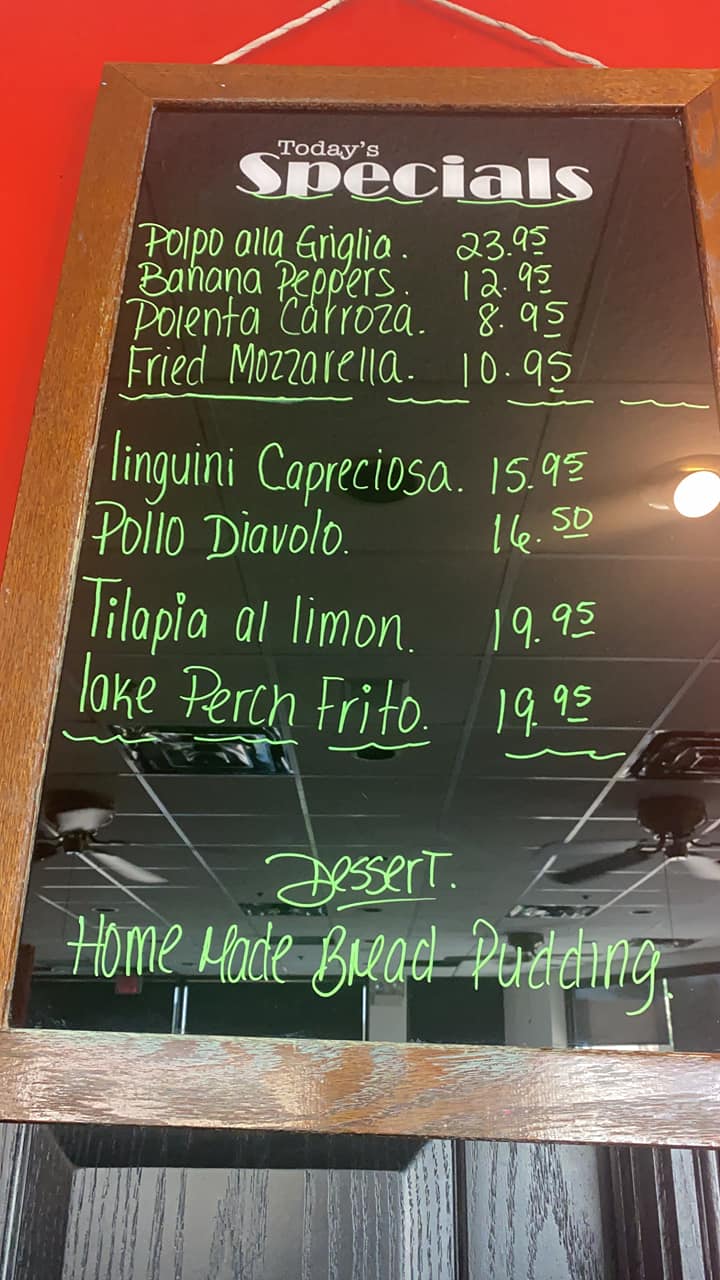 Today's
Specials
Polpo alla Griglia. 23.95
Banana Peppers. 12.95
Polenta Carroza. 8.95
Fried Mozzarella. 10.95
linguini Capreciosa. 15.95
Pollo Diavolo. 16.50
Tilapia al limon. 19.95
lake Perch Frito. 19.95
Dessert.
Home Made Bread Pudding.